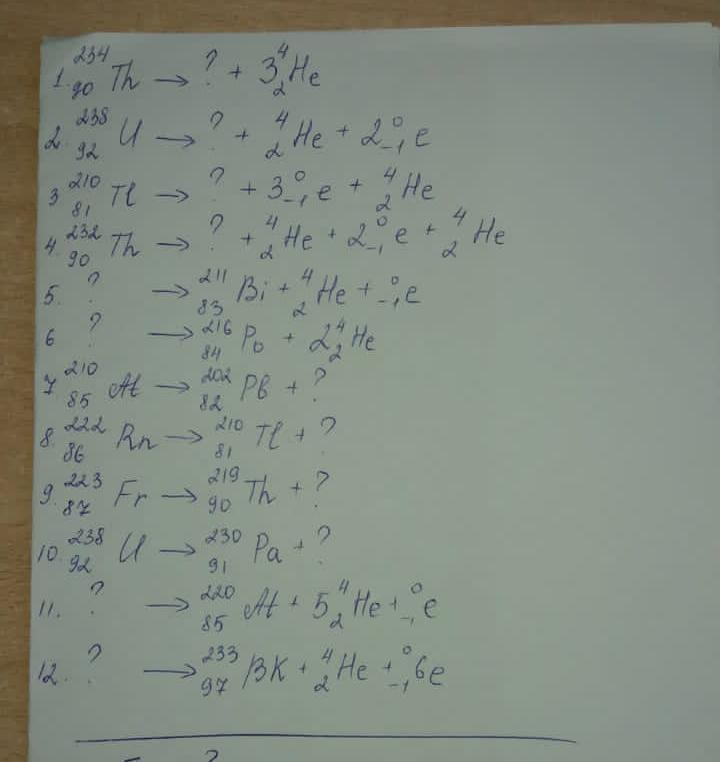 1. ²³⁴₉₀Th → ? + 3⁴₂He
2. ²³⁸₉₂U → ? + ⁴₂He + 2⁰₋₁e
3 ²¹⁰₈₁Tl → ? + 3⁰₋₁e + ⁴₂He
4. ²³²₉₀Th → ? + ⁴₂He + 2⁰₋₁e + ⁴₂He
5. ? → ²¹¹₈₃Bi + ⁴₂He + ⁰₋₁e
6 ? → ²¹⁶₈₄Po + 2⁴₂He
7 ²¹⁰₈₅At → ²⁰²₈₂Pb + ?
8. ²²²₈₆Rn → ²¹⁰₈₁Tl + ?
9. ²²³₈₇Fr → ²¹⁹₉₀Th + ?
10. ²³⁸₉₂U → ²³⁰₉₁Pa + ?
11. ? → ²²⁰₈₅At + 5⁴₂He + ⁰₋₁e
12. ? → ²³³₉₇BK + ⁴₂He + ⁰₋₁6e